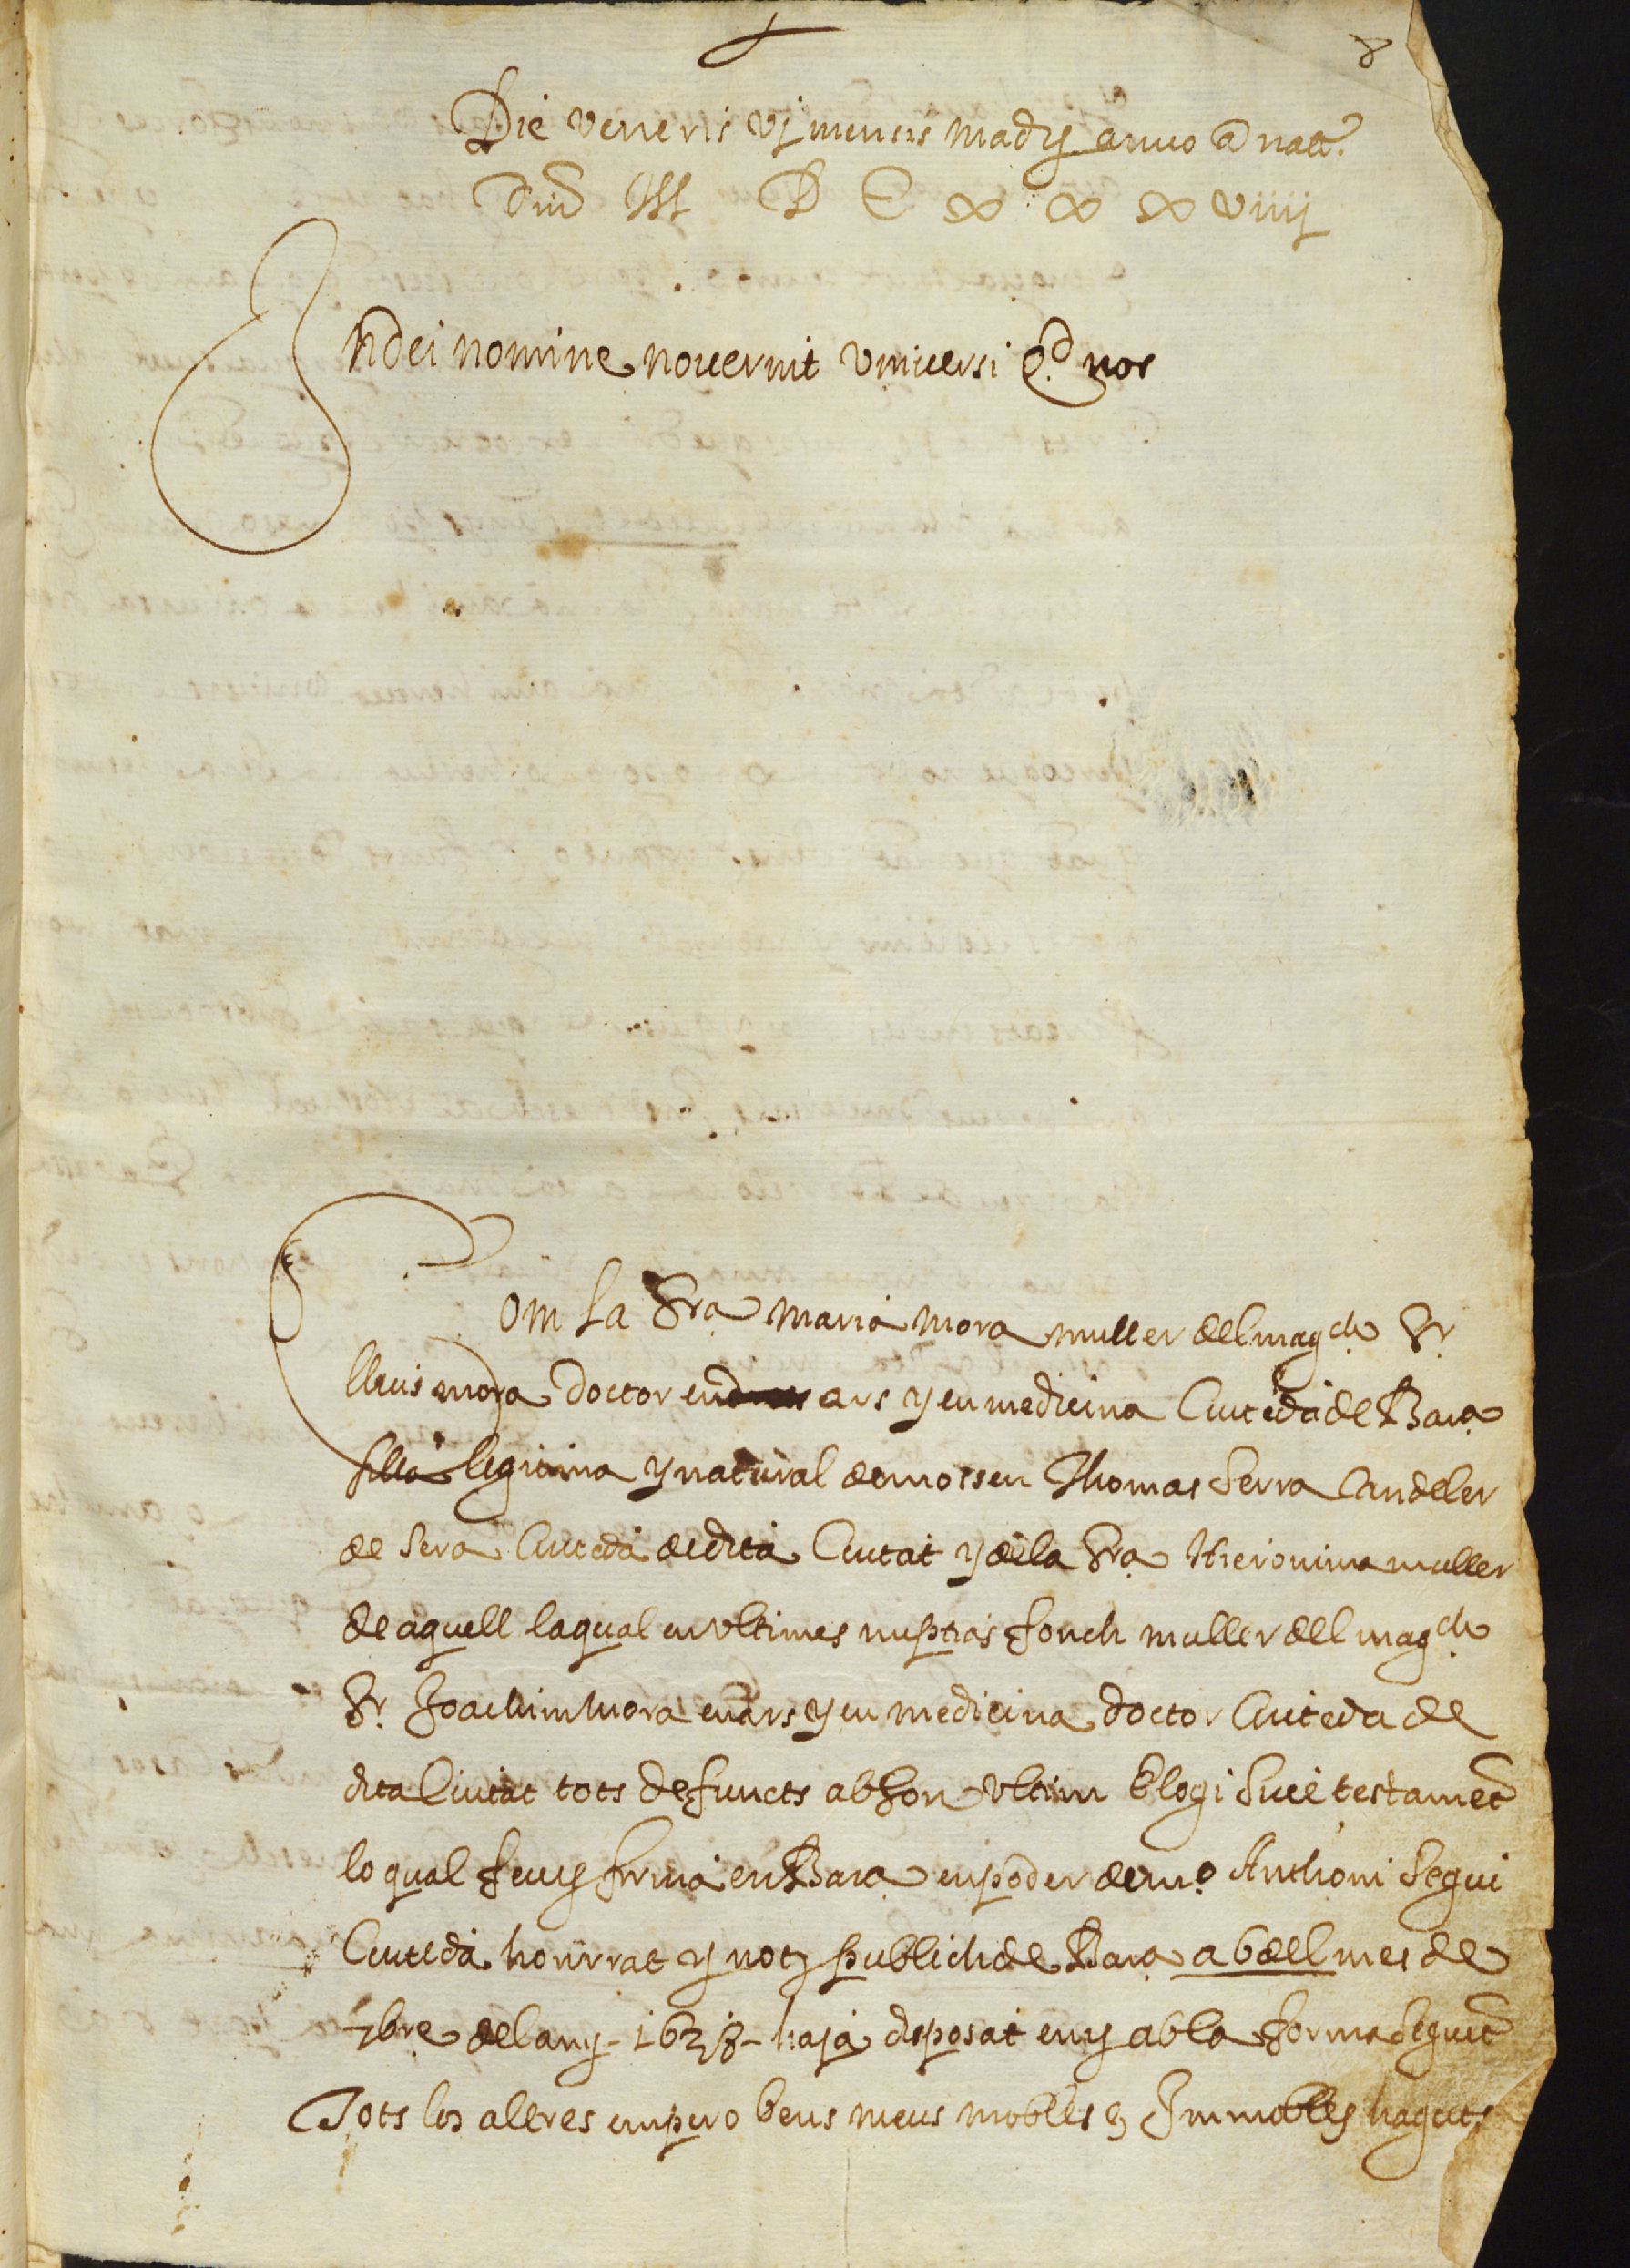 8
Die veneris vj mensis madij anno a natt.e
Dni M D C x x x viiij
In dei nomine noverint universi qd. nos
Com la Sra. maria mora muller del magch. Sr.
lluis mora doctor en ars y en medicina Ciuteda de Bara.
filla legitima y natural de mossen Thomas Serra Candeler
de sera Ciuteda de dita Ciutat y de la Sra. Hieronima muller
de aquell la qual en ultimes nuptias fonch muller del magch.
Sr. Joachim mora en ars y en medicina doctor Ciuteda de
dita Ciutat tots defuncts ab son ultim Elogi sive testamet
lo qual feu y firma en Bara. en poder de mo. Anthoni Segui
Ciuteda honrrat y noty. publich de Bara. a 6 del mes de
7bre. del any - 1638 - haja disposat en y ab la forma seguet
Tots los altres empero bens meus mobles e Immobles haguts